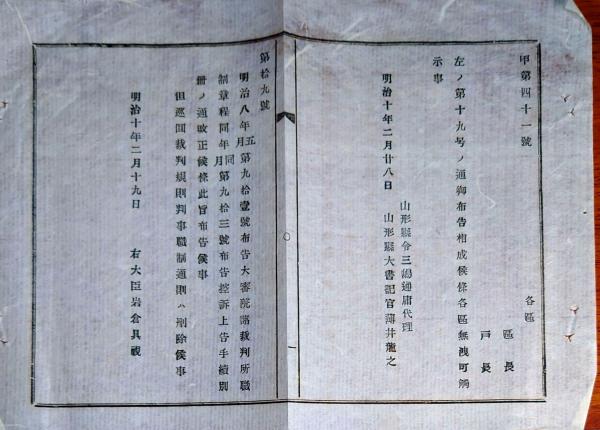 甲第四十一號
各區
區長
戸長
左ノ第十九号ノ通御布告相成候條各區無洩可觸
示事
明治十年二月廿八日
山形縣令三島通庸代理
山形縣大書記官薄井龍之
第拾九號
明治八年五月第九拾壹號布告大審院諸裁判所職
制章程同年同月第九拾三號布告控訴上告手續別
冊ノ通改正候條此旨布告候事
但巡回裁判規則判事職制通則ハ刪除候事
明治十年二月十九日
右大臣岩倉具視